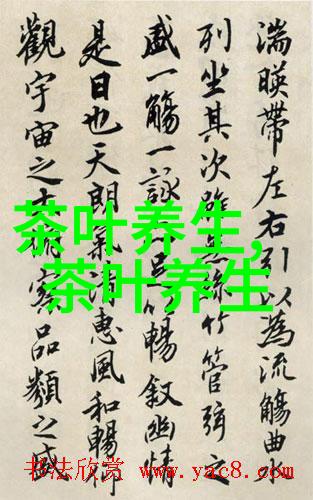 湍暎帶左右引以為流觴曲
列坐其次雖無絲竹管弦之
盛一觴一詠足以暢敘幽情
是日也天朗氣清惠風和暢仰
觀宇宙之大俯察品類之盛
茶叶养生,
茶叶养生
书法欣赏 www.yac8.com